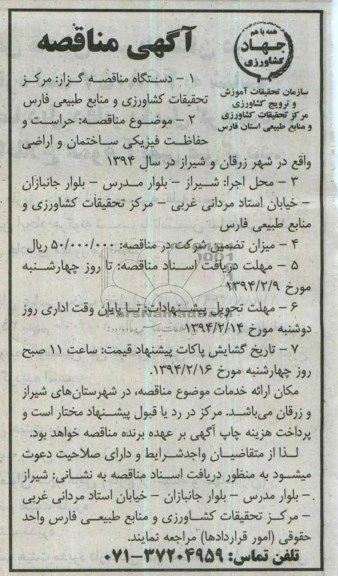 همه با هم
جهاد
کشاورزی
سازمان تحقیقات آموزش
و ترویج کشاورزی
مرکز تحقیقات کشاورزی
و منابع طبیعی استان فارس
آگهی مناقصه
۱ – دستگاه مناقصه گزار: مرکز
تحقیقات کشاورزی و منابع طبیعی فارس
۲ – موضوع مناقصه: حراست و
حفاظت فیزیکی ساختمان و اراضی
واقع در شهر زرقان و شیراز در سال ۱۳۹۴
۳ – محل اجرا: شیراز – بلوار مدرس – بلوار جانبازان
– خیابان استاد مردانی غربی – مرکز تحقیقات کشاورزی و
منابع طبیعی فارس
۴ – میزان تضمین شرکت در مناقصه: ۵۰/۰۰۰/۰۰۰ ریال
۵ – مهلت دریافت اسناد مناقصه: تا روز چهارشنبه
مورخ ۱۳۹۴/۲/۹
۶ – مهلت تحویل پیشنهادات: تا پایان وقت اداری روز
دوشنبه مورخ ۱۳۹۴/۲/۱۴
۷ – تاریخ گشایش پاکات پیشنهاد قیمت: ساعت ۱۱ صبح
روز چهارشنبه مورخ ۱۳۹۴/۲/۱۶.
مکان ارائه خدمات موضوع مناقصه، در شهرستان‌های شیراز
و زرقان می‌باشد. مرکز در رد یا قبول پیشنهاد مختار است و
پرداخت هزینه چاپ آگهی بر عهده برنده مناقصه خواهد بود.
لذا از متقاضیان واجدشرایط و دارای صلاحیت دعوت
میشود به منظور دریافت اسناد مناقصه به نشانی: شیراز
– بلوار مدرس – بلوار جانبازان – خیابان استاد مردانی غربی
– مرکز تحقیقات کشاورزی و منابع طبیعی فارس واحد
حقوقی (امور قراردادها) مراجعه نمایند.
تلفن تماس: ۳۷۲۰۴۹۵۹–۰۷۱